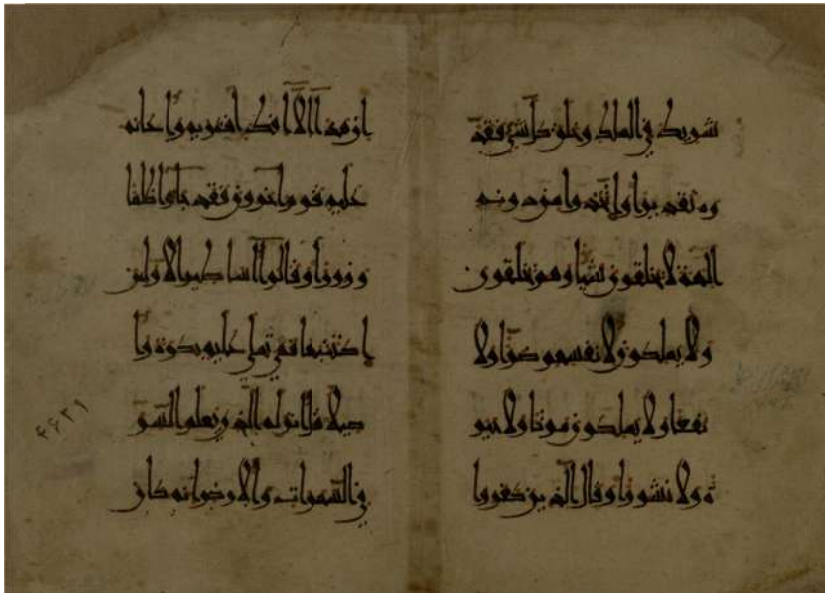 شريك في الملك وخلق كل شيء فقد
ره تقديرا واتخذوا من دونه
آلهة لا يخلقون شيئا وهم يخلقون
ولا يملكون لأنفسهم ضرا ولا
نفعا ولا يملكون موتا ولا حيو
ة ولا نشورا وقال الذين كفروا
إن هذا إلا إفك افتريه وأعانه
عليه قوم آخرون فقد جاءو ظلما
وزورا وقالوا أساطير الأولين
اكتتبها فهي تملى عليه بكرة وأ
صيلا قل أنزله الذي يعلم السر
في السموات والأرض إنه كان
۴۶۳۱